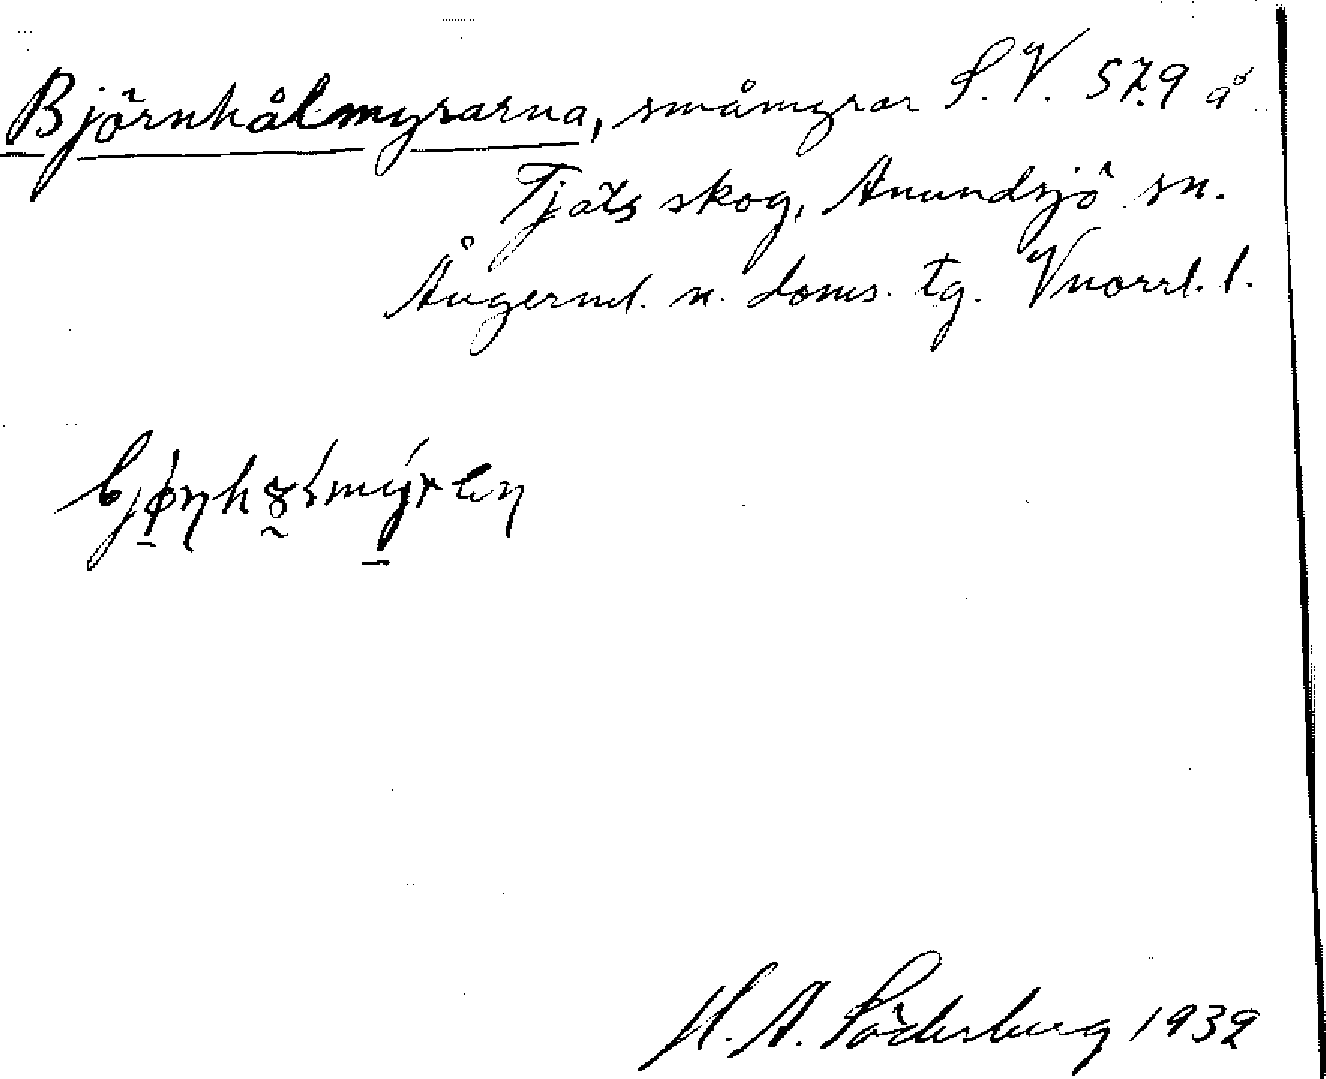 Björnhålmyrarna, småmyrar S.V. 579 å
Tjäls skog, Anundsjö sn.
Ångerml. n. doms. tg. Vnorrl. l.
H. A. Söderberg 1932